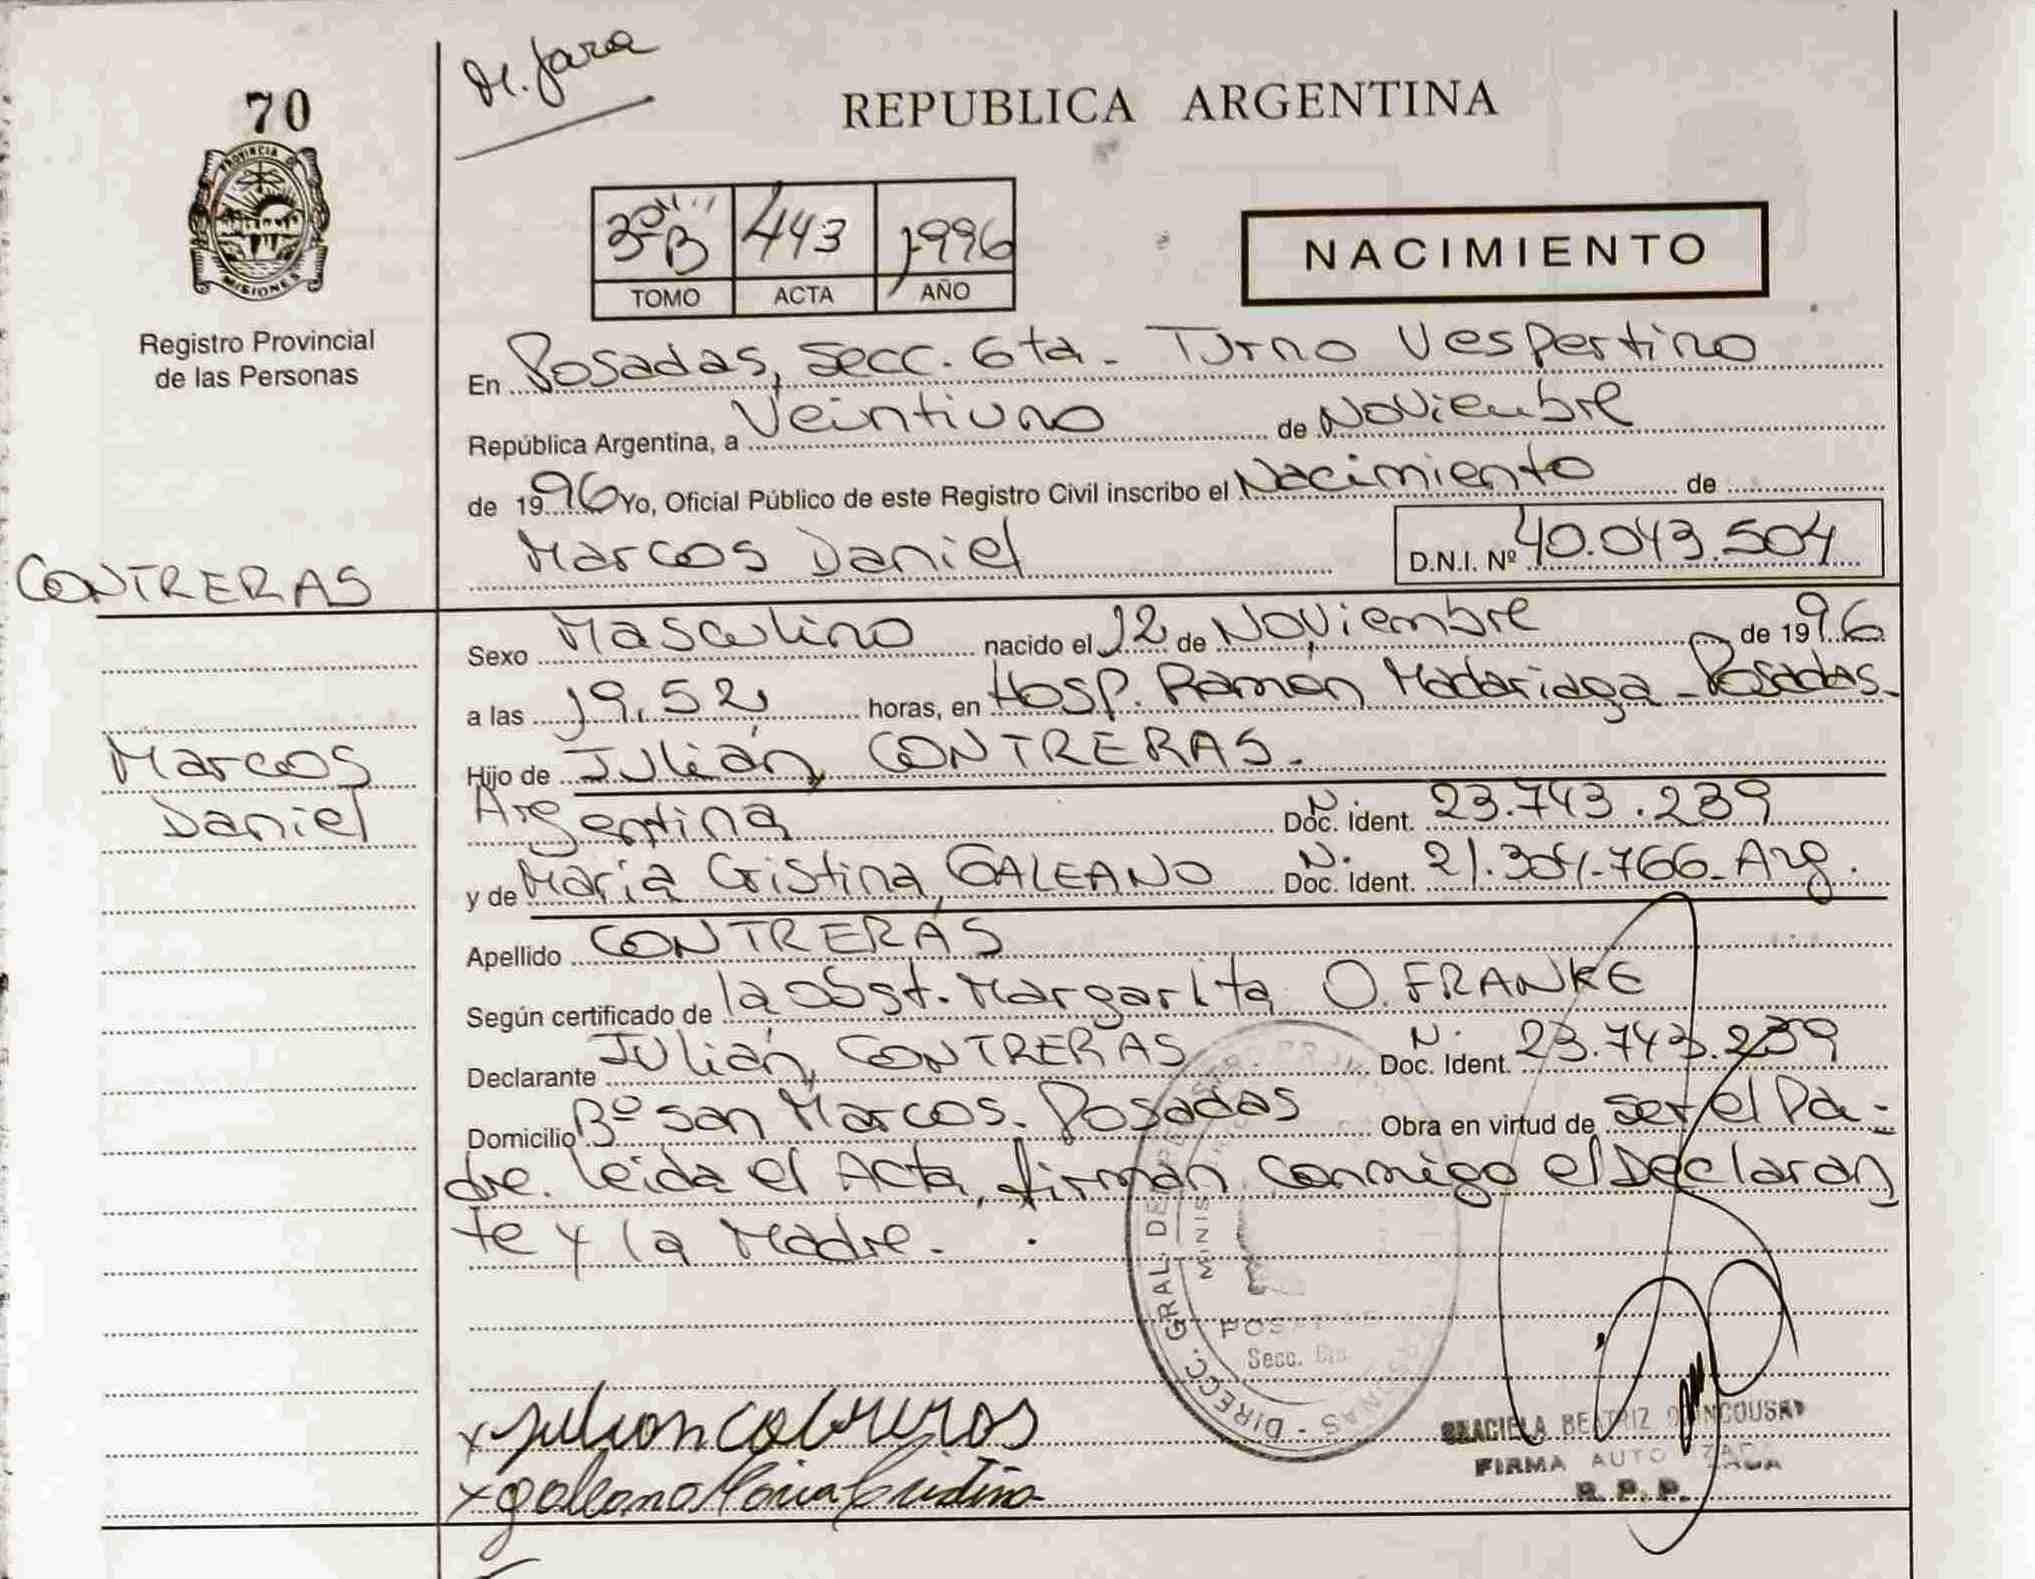 70
M. Jara
REPUBLICA ARGENTINA
PROVINCIA
MISIONES
3º B 443 1996
TOMO ACTA AÑO
NACIMIENTO
Registro Provincial
de las Personas
En Posadas, Secc. 6ta - Turno Vespertino
República Argentina, a Veintiuno de Noviembre
de 1996 Yo, Oficial Público de este Registro Civil inscribo el Nacimiento de
Marcos Daniel D.N.I. Nº 40.043.504
CONTRERAS
Sexo Masculino nacido el 12 de Noviembre de 1996
a las 19,52, horas, en Hosp. Ramón Madariaga - Posadas-
Hijo de Julián CONTRERAS.
Marcos
Daniel
Argentina N. Doc. Ident. 23.743.239
y de María Cristina GALEANO N. Doc. Ident. Arg.
Apellido CONTRERAS
Según certificado de la obst. Margarita O. FRANKE
Declarante Julián CONTRERAS N. Doc. Ident. 23.743.239
Domicilio Bº San Marcos. Posadas Obra en virtud de ser el Pa-
dre. Leida el Acta, firman conmigo el Declaran
te y la Madre.
DIRECC. GRAL. DE
MINIS
POSADAS
Secc.
x Julian
x galeano Maria Cristina
GRACIELA BEATRIZ
FIRMA AUTORIZADA
R. P. P.